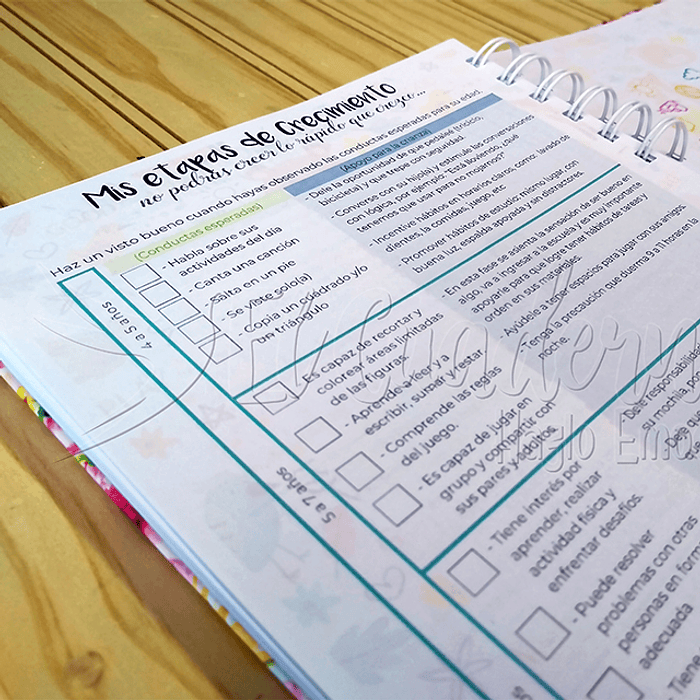 Mis etapas de Crecimiento
no podrás creer lo rápido que crezco...
Haz un visto bueno cuando hayas observado las conductas esperadas para su edad.
(Conductas esperadas)
4 a 5 años
- Habla sobre sus
actividades del día
- Canta una canción
- Salta en un pie
- Se viste solo(a)
- Copia un cuadrado y/o
un triángulo
(Apoyo para la crianza)
- Dele la oportunidad de que pedaleé (triciclo,
bicicleta) y que trepe con seguridad.
- Converse con su hijo(a) y estimule las conversaciones
con lógica, por ejemplo: "Está lloviendo, ¿qué
tenemos que usar para no mojarnos?"
- Incentive hábitos en horarios claros, como: lavado de
dientes, la comidas, juego, etc.
- Promover hábitos de estudio: mismo lugar con
buena luz, espalda apoyada y sin distractores.
5 a 7 años
- Es capaz de recortar y
colorear áreas limitadas
de las figuras.
- Aprende a leer y a
escribir, sumar y restar.
- Comprende las reglas
del juego.
- Es capaz de jugar en
grupo y compartir con
sus pares y adultos.
- En esta fase se asienta la sensación de ser bueno en
algo, va a ingresar a la escuela y es muy importante
apoyarle para que logre tener hábitos de aseo y
orden en sus materiales.
- Ayúdele a tener espacios para jugar con sus amigos.
- Tenga la precaución que duerma 9 a 11 horas en
noche.
- Tiene interés por
aprender, realizar
actividad física y
enfrentar desafíos.
- Puede resolver
problemas con otras
personas en for
adecuada
- Tiene
responsabilidad
su mochila, po
Haglo Emo